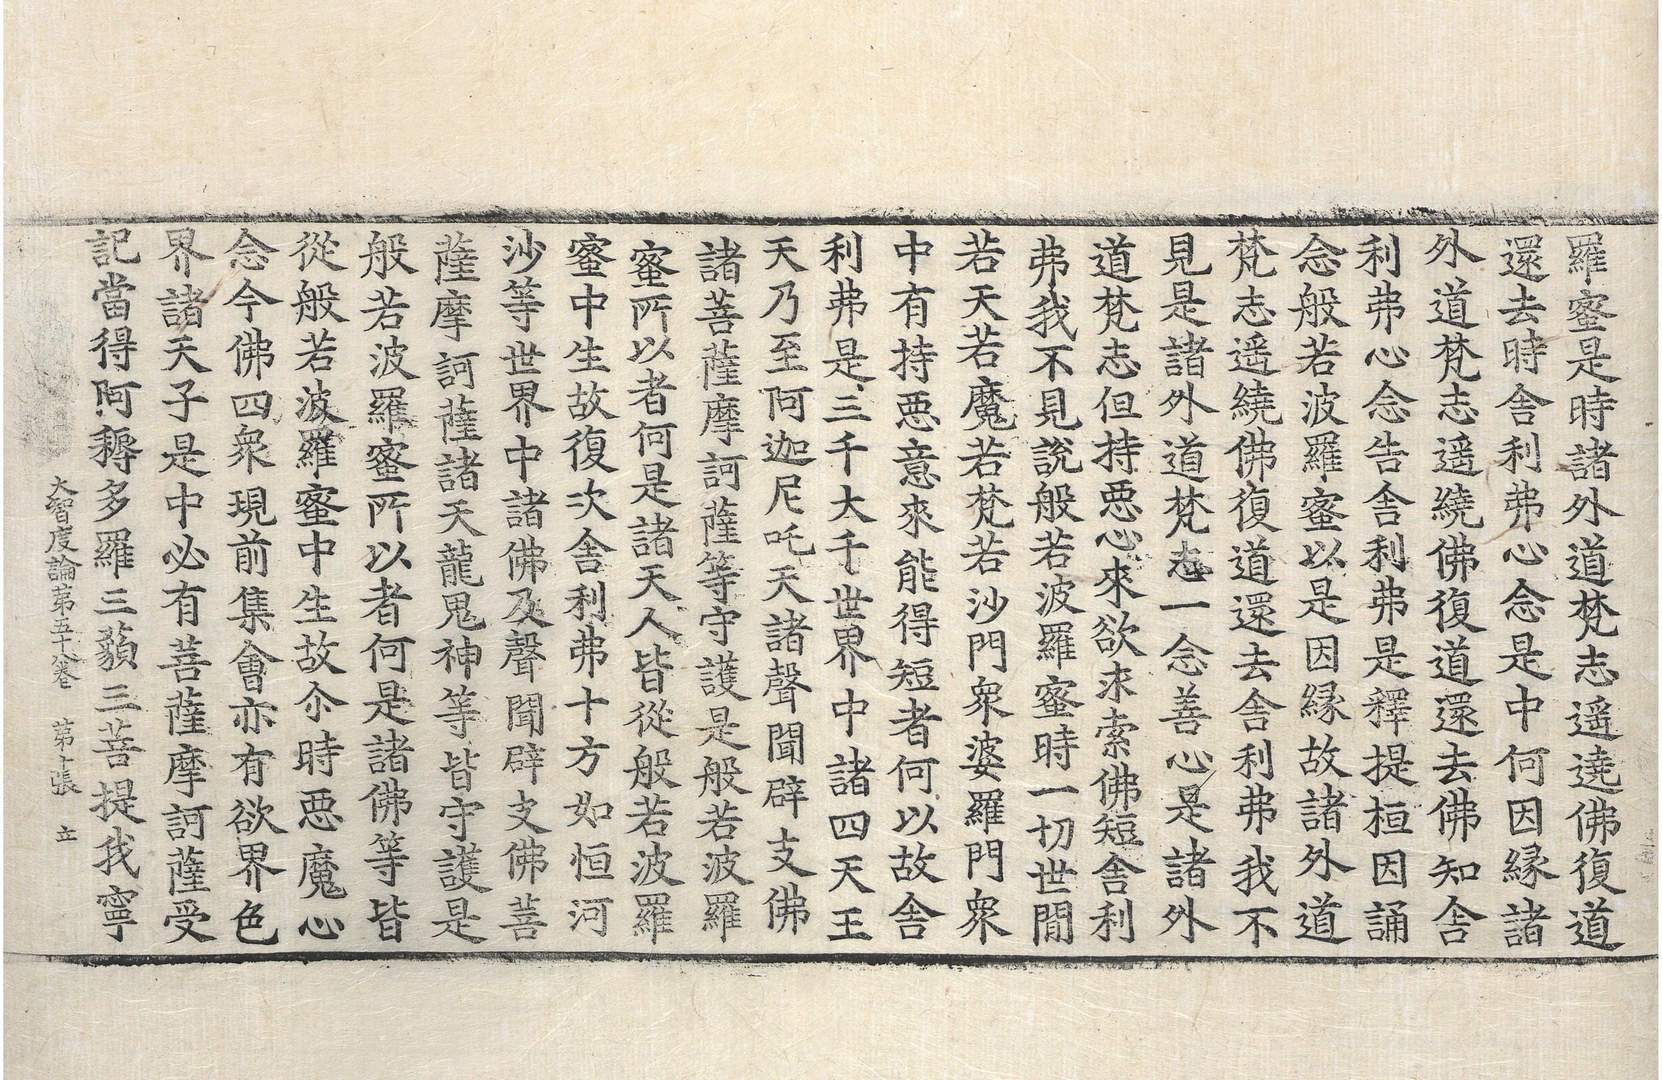 羅蜜是時諸外道梵志遥遶佛復道
還去時舎利弗心念是中何因縁諸
外道梵志遥繞佛復道還去佛知舎
利弗心念告舎利弗是釋提桓因誦
念般若波羅蜜以是因縁故諸外道
梵志遥繞佛復道還去舎利弗我不
見是諸外道梵志一念善心是諸外
道梵志但持悪心來欲求索佛短舎利
弗我不見說般若波羅蜜時一切世間
若天若魔若梵若沙門衆婆羅門衆
中有持悪意來能得短者何以故舎
利弗是三千大千世界中諸四天王
天乃至阿迦尼吒天諸聲聞辟支佛
諸菩薩摩訶薩等守護是般若波羅
蜜所以者何是諸天人皆從般若波羅
蜜中生故復次舎利弗十方如恒河
沙等世界中諸佛及聲聞辟支佛菩
薩摩訶薩諸天龍鬼神等皆守護是
般若波羅蜜所以者何是諸佛等皆
從般若波羅蜜中生故尒時悪魔心
念今佛四衆現前集會亦有欲界色
界諸天子是中必有菩薩摩訶薩受
記當得阿耨多羅三藐三菩提我寧
大智度論第五十八卷 第十張 立